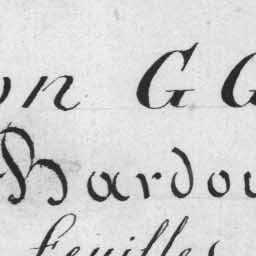 on G G
Hardou
feuilles